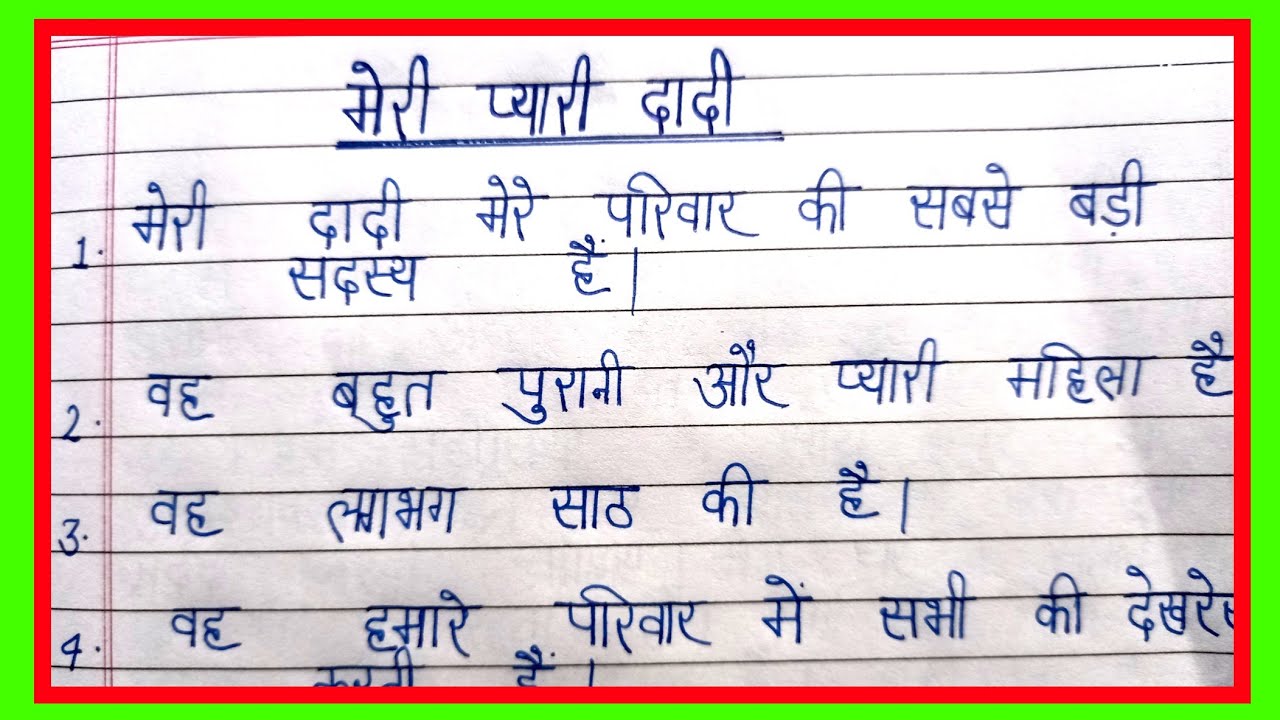 मेरी प्यारी दादी
1. मेरी दादी मेरे परिवार की सबसे बड़ी
सदस्य हैं।
2. वह बहुत पुरानी और प्यारी महिला है
3. वह लगभग साठ की है।
4. वह हमारे परिवार में सभी की देखरेख
करती हैं।